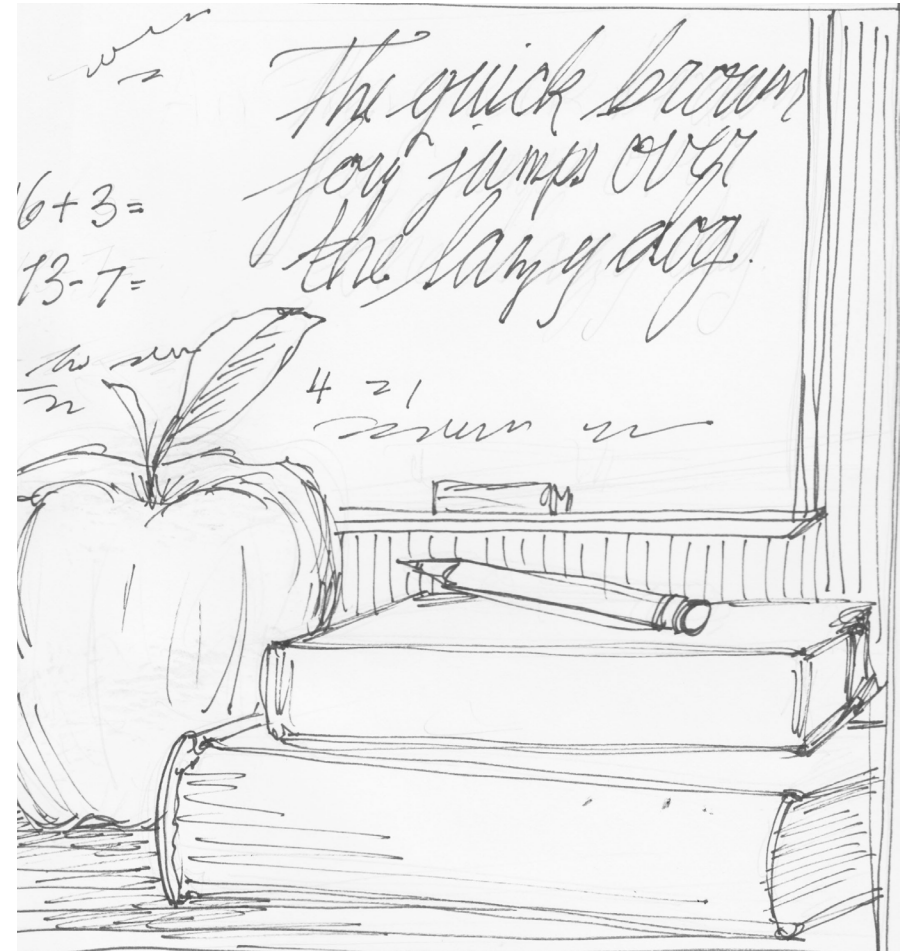 The quick brown
fox jumps over
the lazy dog.
6+3=
13-7=
4 = 1